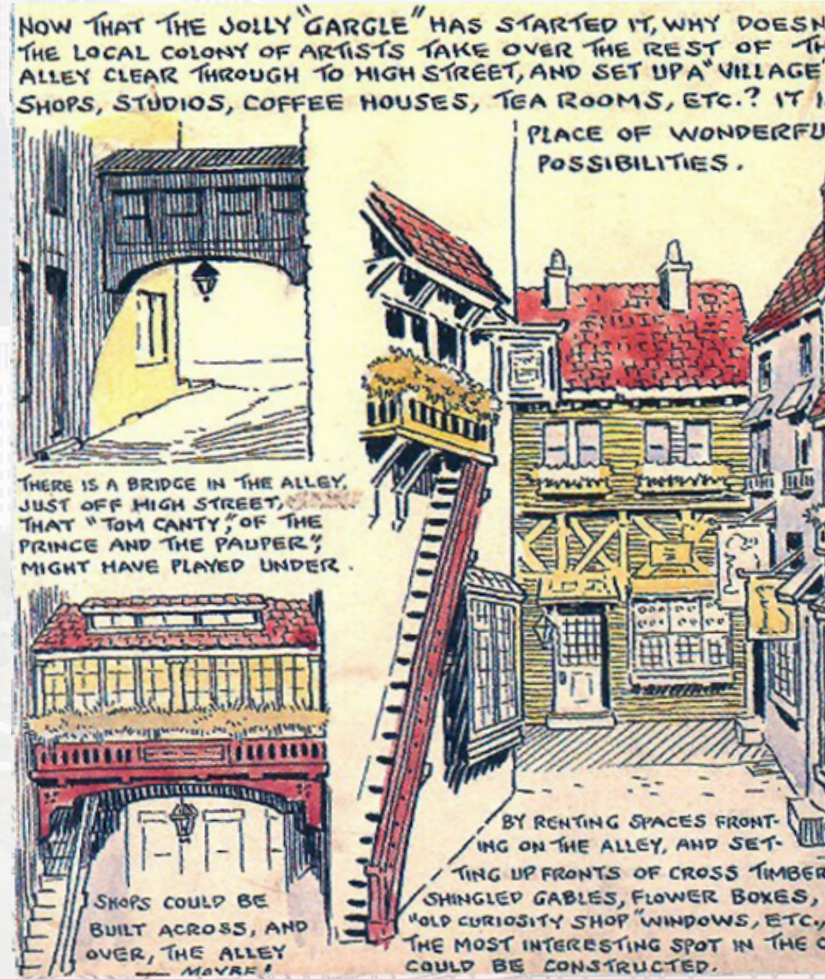 NOW THAT THE JOLLY "GARGLE" HAS STARTED IT, WHY DOESN
THE LOCAL COLONY OF ARTISTS TAKE OVER THE REST OF TH
ALLEY CLEAR THROUGH TO HIGH STREET, AND SET UP A "VILLAGE"
SHOPS, STUDIOS, COFFEE HOUSES, TEA ROOMS, ETC.? IT I
PLACE OF WONDERFU
POSSIBILITIES.
THERE IS A BRIDGE IN THE ALLEY,
JUST OFF HIGH STREET,
THAT "TOM CANTY," OF THE
PRINCE AND THE PAUPER",
MIGHT HAVE PLAYED UNDER.
SHOPS COULD BE
BUILT ACROSS, AND
OVER, THE ALLEY
— MAYBE.
BY RENTING SPACES FRONT-
ING ON THE ALLEY, AND SET-
TING UP FRONTS OF CROSS TIMBER
SHINGLED GABLES, FLOWER BOXES,
"OLD CURIOSITY SHOP" WINDOWS, ETC.,
THE MOST INTERESTING SPOT IN THE C
COULD BE CONSTRUCTED.